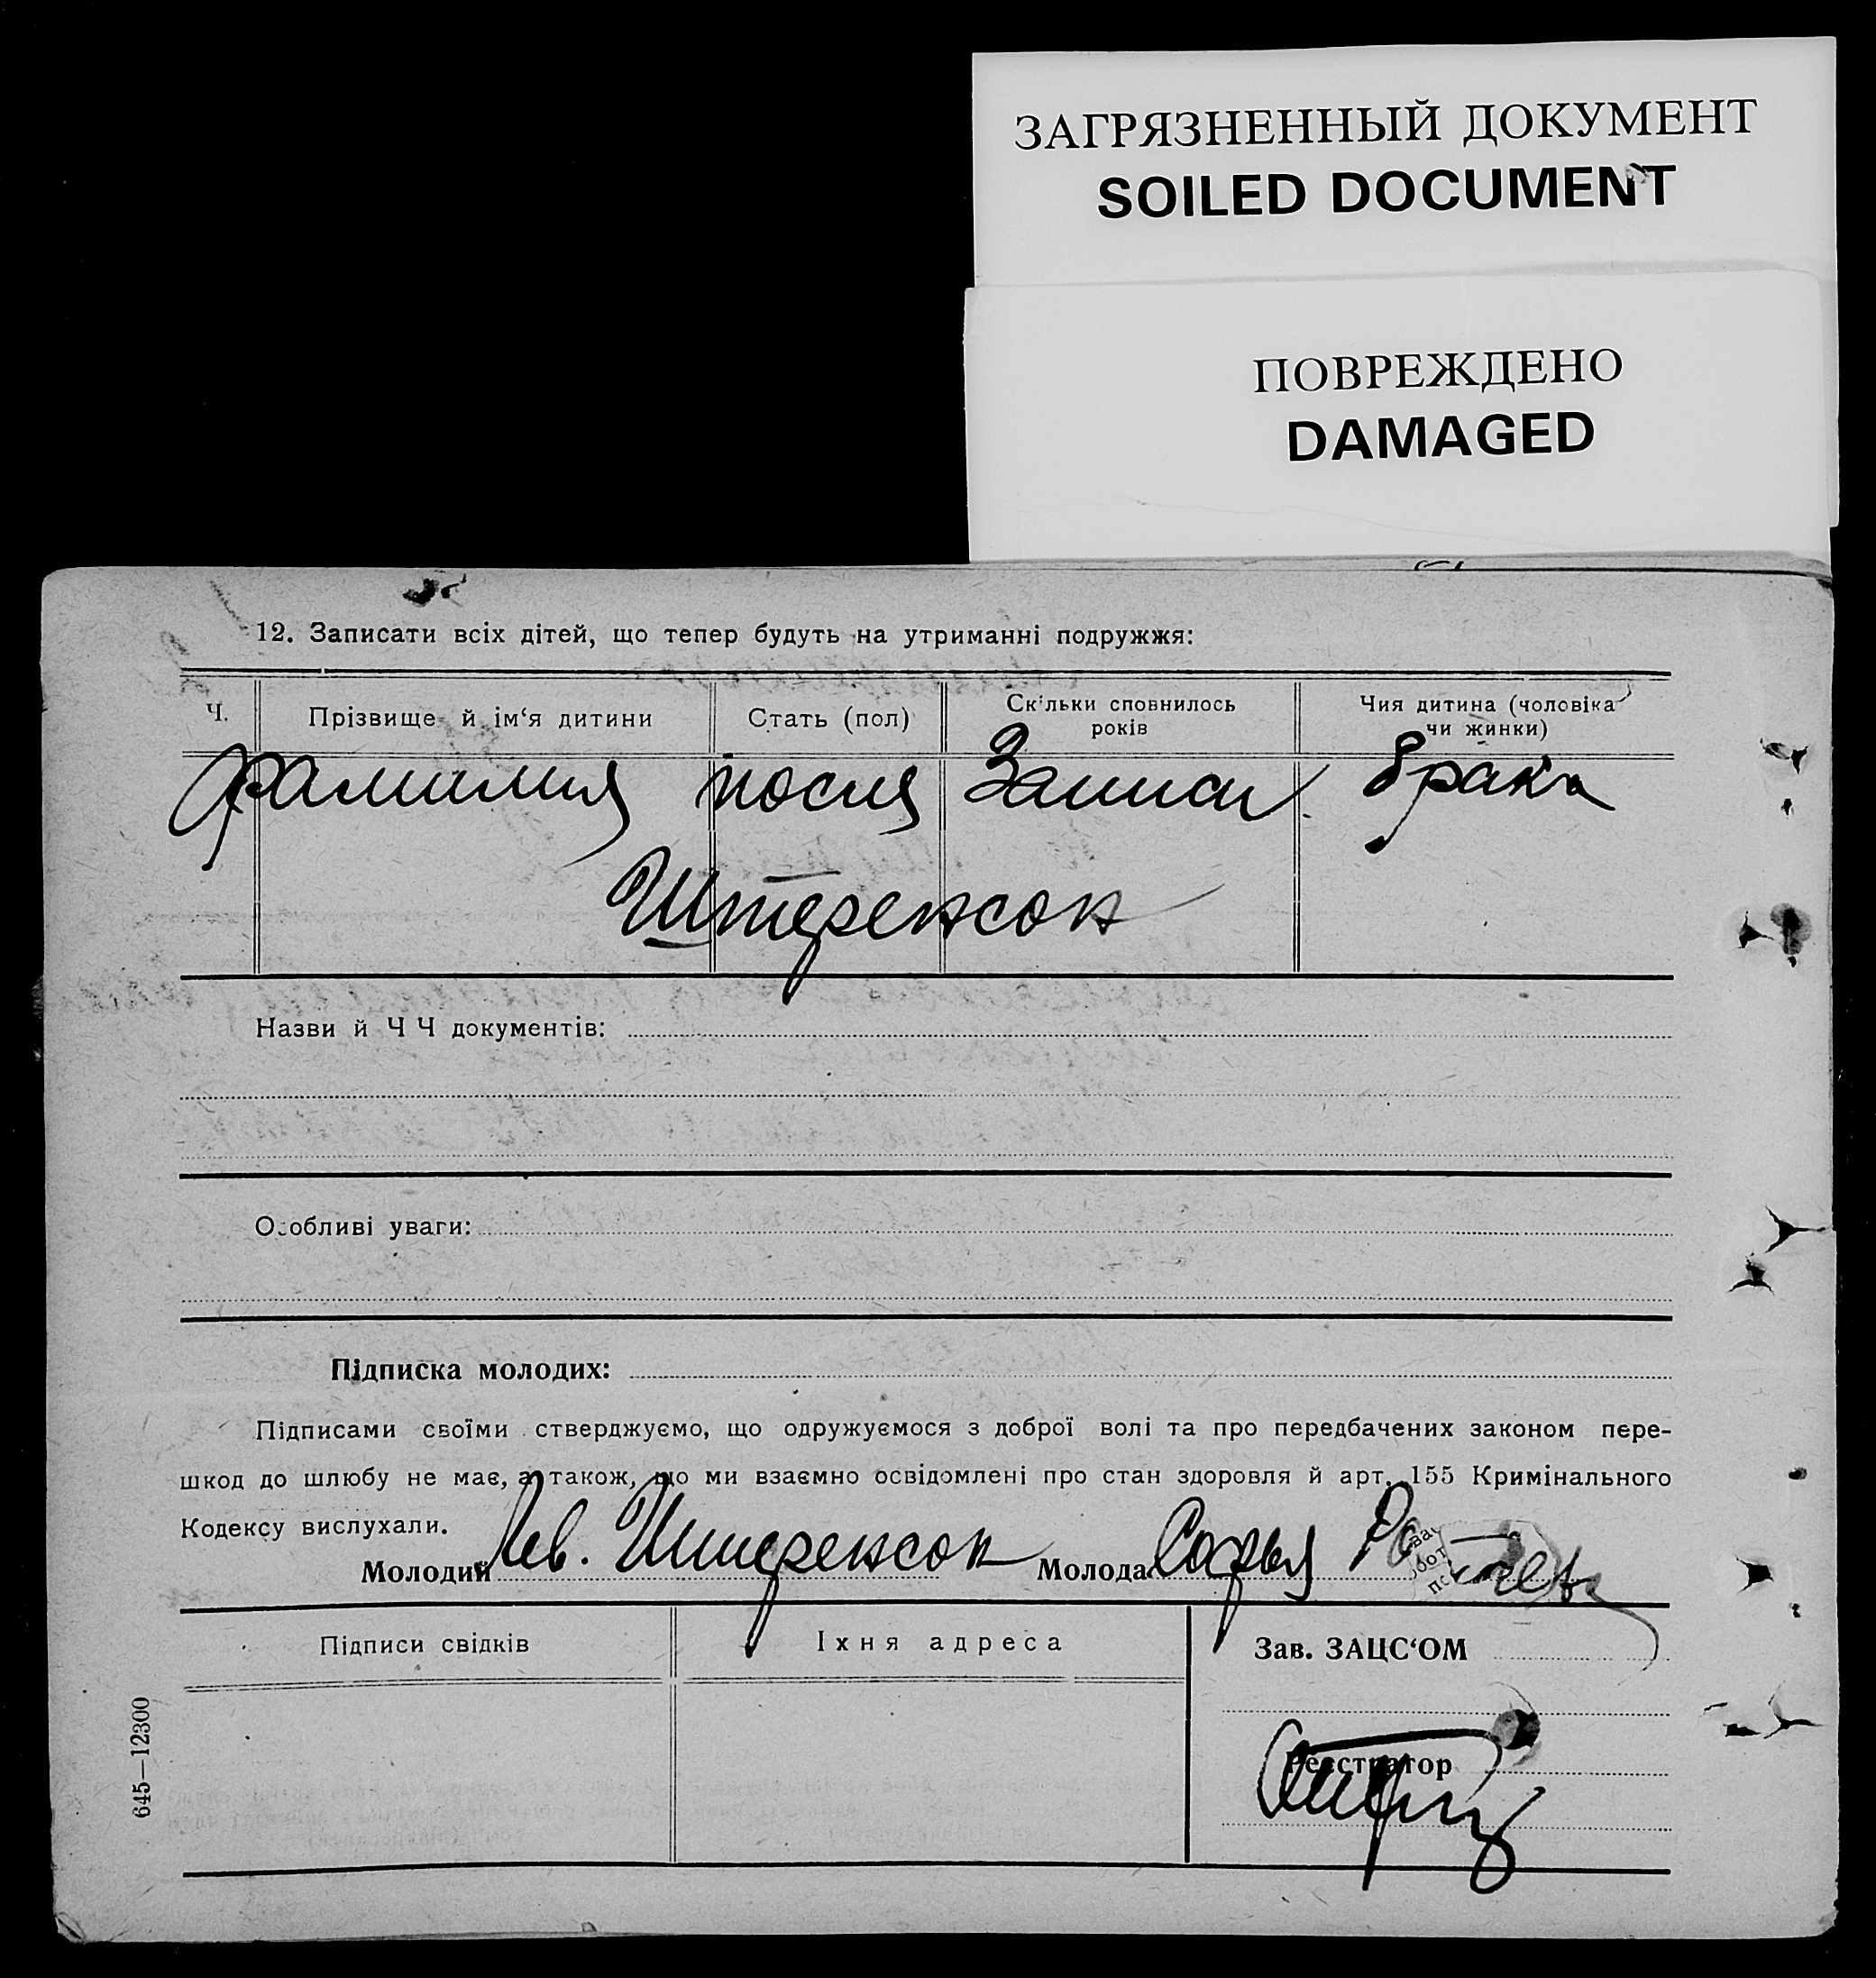 ЗАГРЯЗНЕННЫЙ ДОКУМЕНТ
SOILED DOCUMENT
ПОВРЕЖДЕНО
DAMAGED
12. Записати всіх дітей, що тепер будуть на утриманні подружжя:
Ч.
Прізвище й ім‘я дитини
Стать (пол)
Скільки сповнилось
років
Чия дитина (чоловіка
чи жинки)
Фамилия после записи брака
Штеренсон
Назви й Ч Ч документів:
Особливі уваги:
Підписка молодих:
Підписами своїми стверджуємо, що одружуємося з доброї волі та про передбачених законом пере-
шкод до шлюбу не має, а також, що ми взаємно освідомлені про стан здоровля й арт. 155 Кримінального
Кодексу вислухали.
Молодий Лев. Штеренсон Молода Сарра
Підписи свідків
Іхня адреса
Зав. ЗАЦС‘ОМ
Реєстратор
645—12300